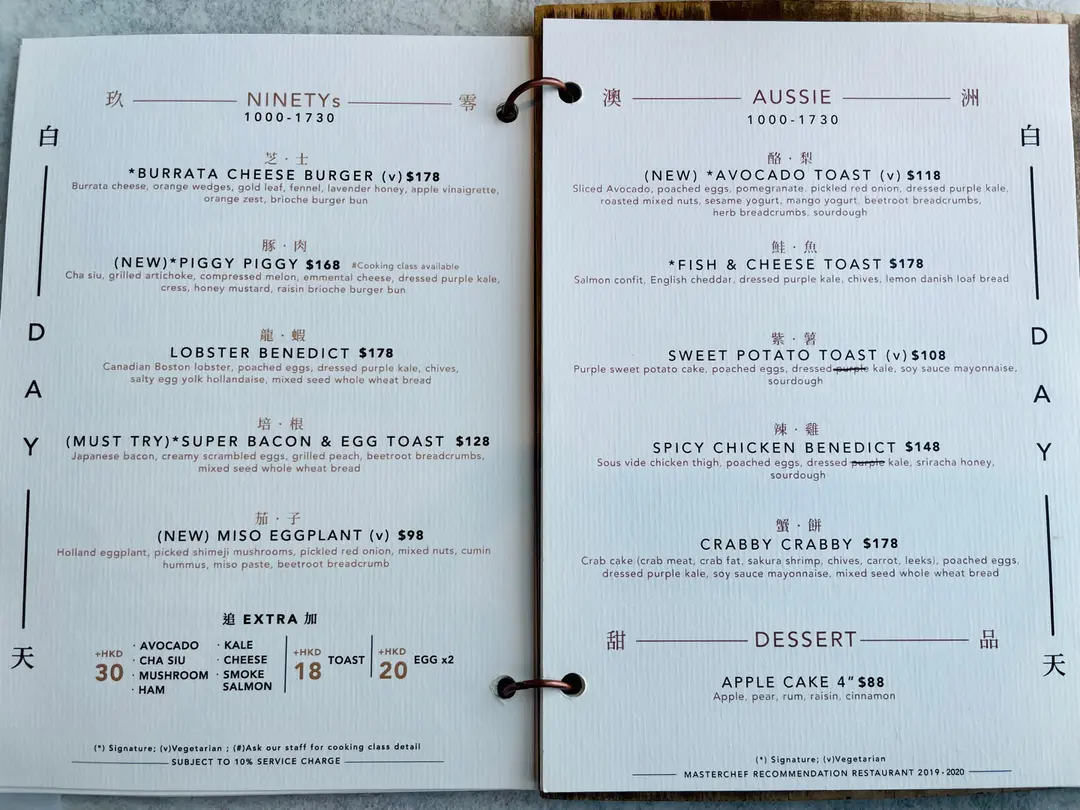 白
DAY
天
玖 NINETYs 零
1000-1730
芝·士
*BURRATA CHEESE BURGER (v) $178
Burrata cheese, orange wedges, gold leaf, fennel, lavender honey, apple vinaigrette,
orange zest, brioche burger bun
豚·肉
(NEW)*PIGGY PIGGY $168 #Cooking class available
Cha siu, grilled artichoke, compressed melon, emmental cheese, dressed purple kale,
cress, honey mustard, raisin brioche burger bun
龍·蝦
LOBSTER BENEDICT $178
Canadian Boston lobster, poached eggs, dressed purple kale, chives,
salty egg yolk hollandaise, mixed seed whole wheat bread
培·根
(MUST TRY)*SUPER BACON & EGG TOAST $128
Japanese bacon, creamy scrambled eggs, grilled peach, beetroot breadcrumbs,
mixed seed whole wheat bread
茄·子
(NEW) MISO EGGPLANT (v) $98
Holland eggplant, picked shimeji mushrooms, pickled red onion, mixed nuts, cumin
hummus, miso paste, beetroot breadcrumb
追 EXTRA 加
+HKD 30
· AVOCADO
· CHA SIU
· MUSHROOM
· HAM
· KALE
· CHEESE
· SMOKE SALMON
+HKD 18 TOAST
+HKD 20 EGG x2
(*) Signature; (v)Vegetarian ; (#)Ask our staff for cooking class detail
SUBJECT TO 10% SERVICE CHARGE
澳 AUSSIE 洲
1000-1730
酪·梨
(NEW) *AVOCADO TOAST (v) $118
Sliced Avocado, poached eggs, pomegranate, pickled red onion, dressed purple kale,
roasted mixed nuts, sesame yogurt, mango yogurt, beetroot breadcrumbs,
herb breadcrumbs, sourdough
鮭·魚
*FISH & CHEESE TOAST $178
Salmon confit, English cheddar, dressed purple kale, chives, lemon danish loaf bread
紫·薯
SWEET POTATO TOAST (v) $108
Purple sweet potato cake, poached eggs, dressed purple kale, soy sauce mayonnaise,
sourdough
辣·雞
SPICY CHICKEN BENEDICT $148
Sous vide chicken thigh, poached eggs, dressed purple kale, sriracha honey,
sourdough
蟹·餅
CRABBY CRABBY $178
Crab cake (crab meat, crab fat, sakura shrimp, chives, carrot, leeks), poached eggs,
dressed purple kale, soy sauce mayonnaise, mixed seed whole wheat bread
甜 DESSERT 品
APPLE CAKE 4" $88
Apple, pear, rum, raisin, cinnamon
(*) Signature; (v)Vegetarian
MASTERCHEF RECOMMENDATION RESTAURANT 2019-2020
白
DAY
天